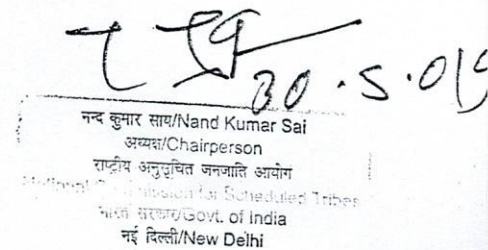 30.5.019
नन्द कुमार साय/Nand Kumar Sai
अध्यक्ष/Chairperson
राष्ट्रीय अनुसूचित जनजाति आयोग
National Commission for Scheduled Tribes
भारत सरकार/Govt. of India
नई दिल्ली/New Delhi